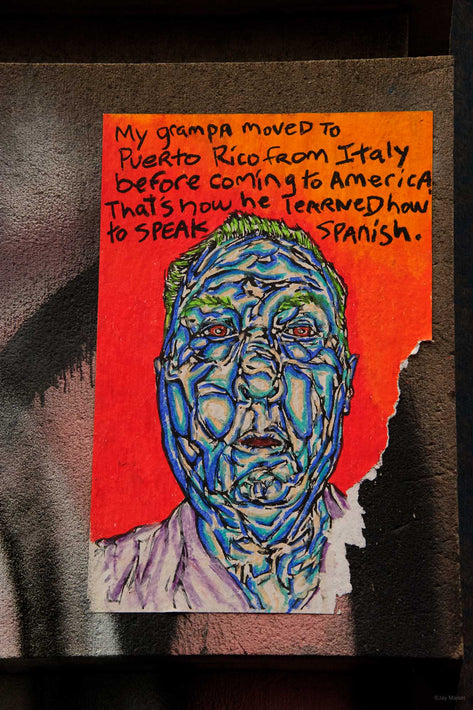 My grampa moved to
Puerto Rico from Italy
before coming to America.
That's how he learned how
to SPEAK SPANish.
©Jay Maisel